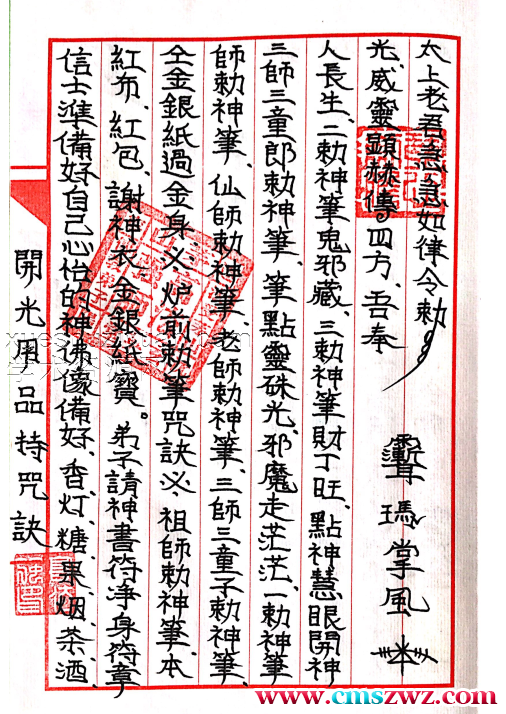 開光用品持咒訣
信士準備好自己心怡的神佛像備好、香、灯、糖果、烟、茶酒、
紅布、紅包、謝神衣、金銀紙寶。弟子請神書符淨身符章
仝金銀紙過金身、必、炉前勅筆咒訣必、祖師勅神筆、本
師勅神筆、仙師勅神筆、老師勅神筆、三師三童子勅神筆、
三師三童郎勅神筆、筆點靈硃光、邪魔走茫茫、一勅神筆
人長生、二勅神筆鬼邪藏、三勅神筆財丁旺、點神慧眼開神
光、威靈顯赫傳四方、吾奉
太上老君急急如律令勅
掌風
www.cmszwz.com